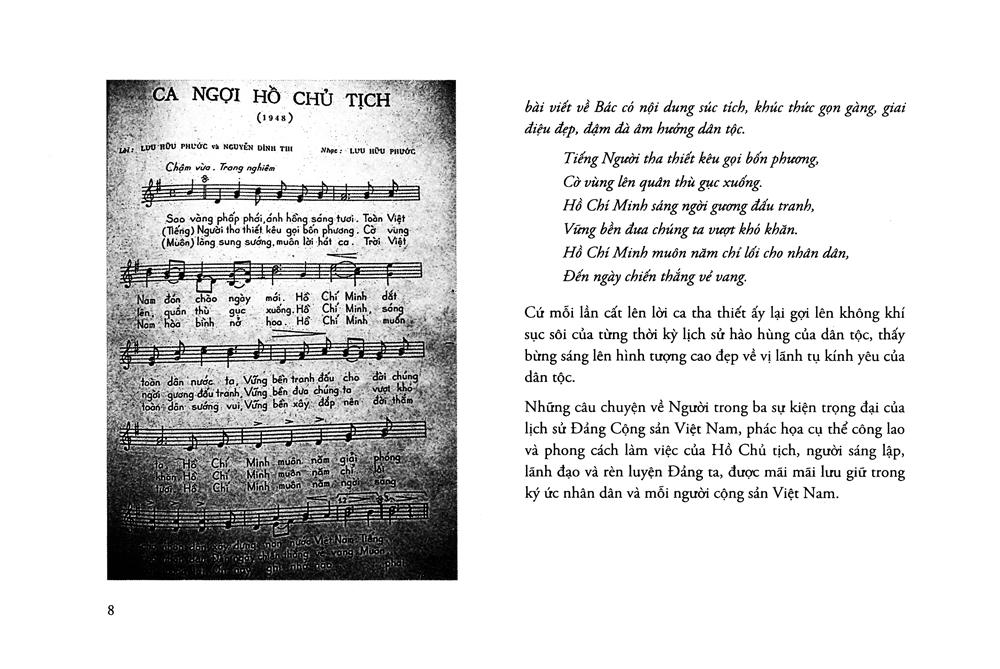 CA NGỢI HỒ CHỦ TỊCH
(1948)
Lời: LƯU HỮU PHƯỚC và NGUYỄN ĐÌNH THI Nhạc: LƯU HỮU PHƯỚC
Chậm vừa. Trang nghiêm
Sao vàng phấp phới, ánh hồng sáng tươi. Toàn Việt
(Tiếng) Người tha thiết kêu gọi bốn phương. Cờ vùng
(Muôn) lòng sung sướng, muôn lời hát ca. Trời Việt
Nam đón chào ngày mới. Hồ Chí Minh dắt
lên, quân thù gục xuống. Hồ Chí Minh, sáng
Nam hòa bình nở hoa. Hồ Chí Minh muôn
toàn dân nước ta, Vững bền tranh đấu cho đời chúng
ngời gương đấu tranh, Vững bền đưa chúng ta vượt khó
toàn dân sướng vui, Vững bền xây đắp nên đời thắm
ta Hồ Chí Minh muôn năm giải phóng
khăn Hồ Chí Minh muôn năm chỉ lối
tươi Hồ Chí Minh muôn năm ngời sáng
cho nhân dân xây dựng nước Việt Nam. Tiếng
cho nhân dân ngày chiến thắng vẻ vang Muôn
8
bài viết về Bác có nội dung súc tích, khúc thức gọn gàng, giai
điệu đẹp, đậm đà âm hưởng dân tộc.
Tiếng Người tha thiết kêu gọi bốn phương,
Cờ vùng lên quân thù gục xuống.
Hồ Chí Minh sáng ngời gương đấu tranh,
Vững bền đưa chúng ta vượt khó khăn.
Hồ Chí Minh muôn năm chỉ lối cho nhân dân,
Đến ngày chiến thắng vẻ vang.
Cứ mỗi lần cất lên lời ca tha thiết ấy lại gợi lên không khí
sục sôi của từng thời kỳ lịch sử hào hùng của dân tộc, thấy
bừng sáng lên hình tượng cao đẹp về vị lãnh tụ kính yêu của
dân tộc.
Những câu chuyện về Người trong ba sự kiện trọng đại của
lịch sử Đảng Cộng sản Việt Nam, phác họa cụ thể công lao
và phong cách làm việc của Hồ Chủ tịch, người sáng lập,
lãnh đạo và rèn luyện Đảng ta, được mãi mãi lưu giữ trong
ký ức nhân dân và mỗi người cộng sản Việt Nam.